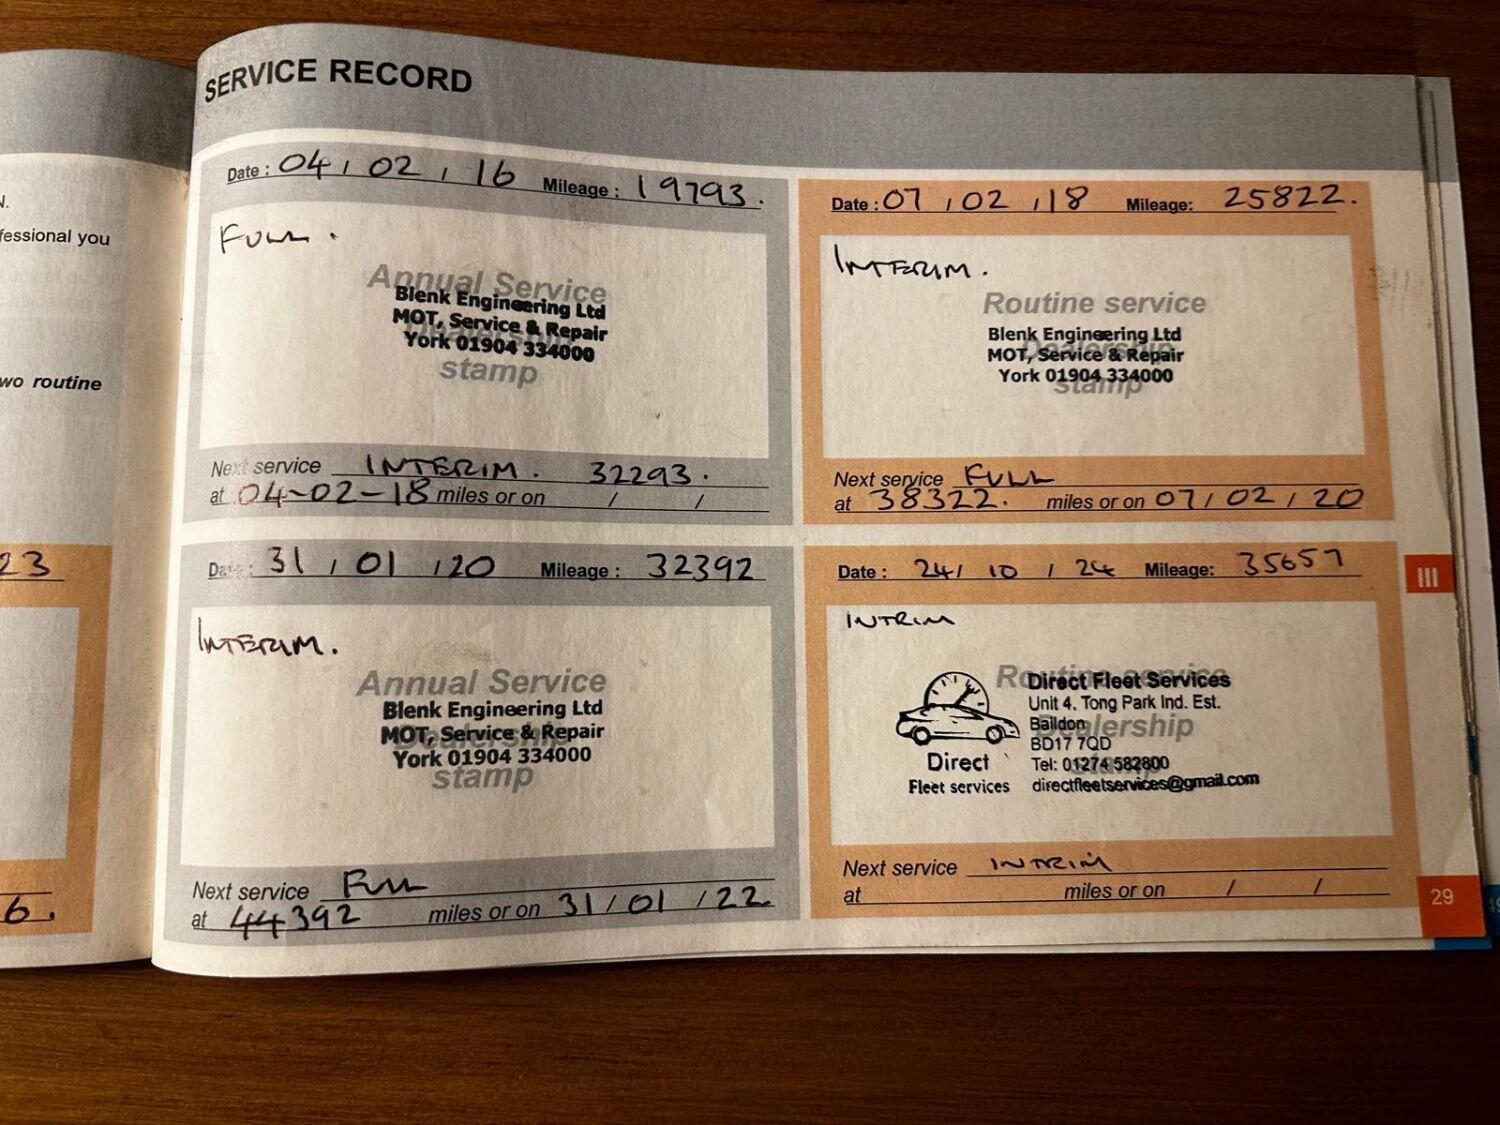 SERVICE RECORD
N.
fessional you
wo routine
23
6.
Date : 04 / 02 / 16 Mileage : 19793.
FULL.
Annual Service
Blenk Engineering Ltd
MOT, Service & Repair
York 01904 334000
Dealership
stamp
Next service INTERIM. 32293.
at 04-02-18 miles or on / /
Date : 07 / 02 / 18 Mileage: 25822.
INTERIM.
Routine service
Blenk Engineering Ltd
Dealership
MOT, Service & Repair
York 01904 334000
stamp
Next service FULL
at 38322. miles or on 07 / 02 / 20
Date : 31 / 01 / 20 Mileage : 32392
INTERIM.
Annual Service
Blenk Engineering Ltd
MOT, Service & Repair
Dealership
York 01904 334000
stamp
Next service FULL
at 44392 miles or on 31 / 01 / 22.
Date : 24 / 10 / 24 Mileage: 35657
INTRIM
Routine service
Direct Fleet Services
Unit 4, Tong Park Ind. Est.
Baildon
Dealership
BD17 7QD
stamp
Tel: 01274 582800
directfleetservices@gmail.com
Direct
Fleet services
Next service INTRIM
at miles or on / /
III
29